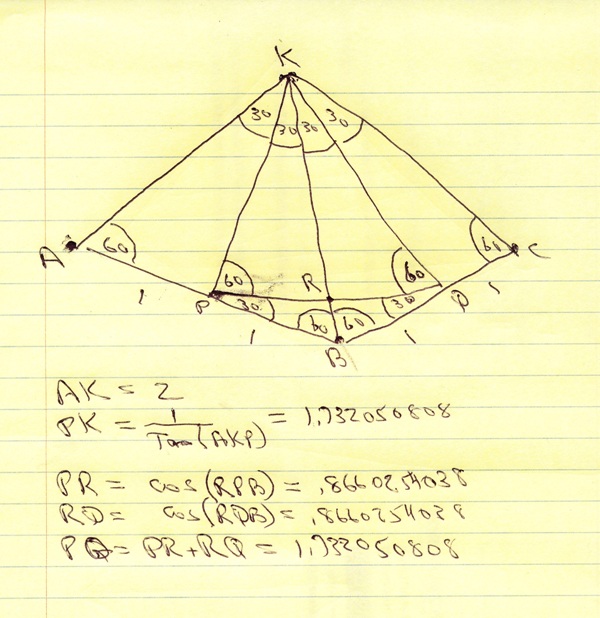 K
30 30 30 30
A 60 60 R 60 60 C
1 P 30 30 Q 1
1 60 60 1
B
AK = 2
PK = 1 / Tan(AKP) = 1.732050808
PR = cos(RPB) = .8660254038
RQ = cos(RQB) = .8660254038
PQ = PR + RQ = 1.732050808